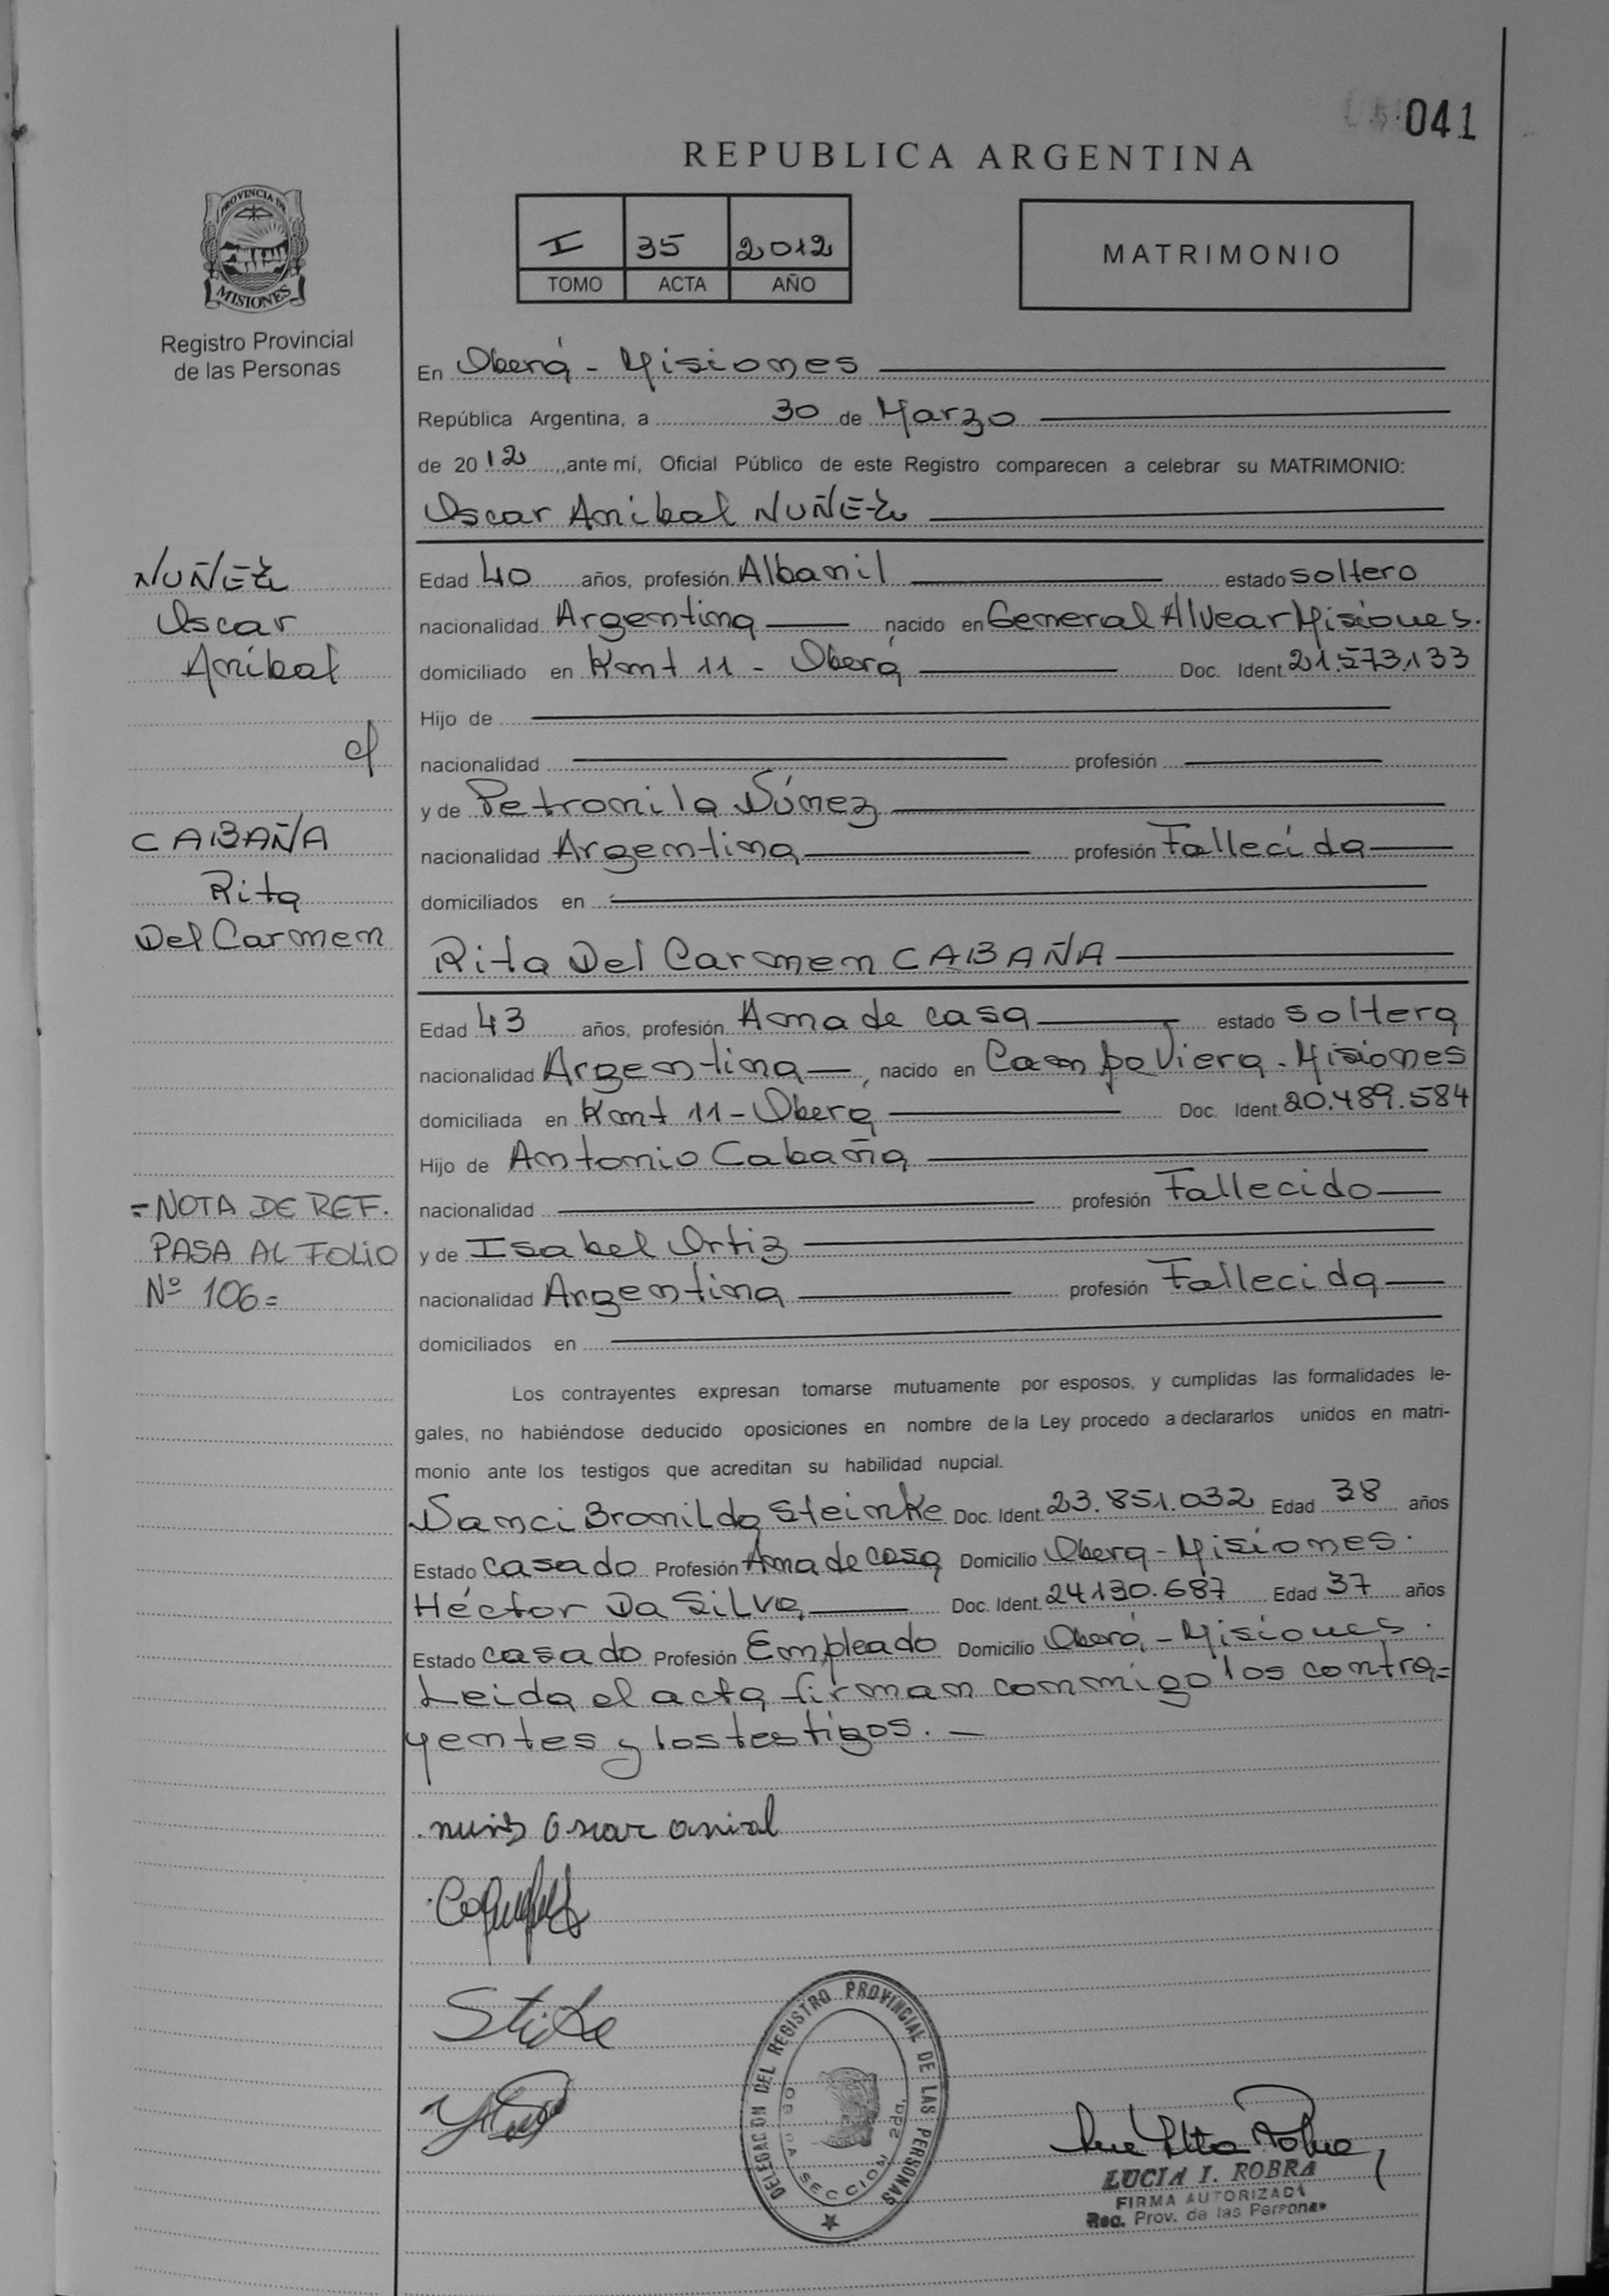 041
REPUBLICA ARGENTINA
PROVINCIA DE
MISIONES
Registro Provincial
de las Personas
I 35 2012
TOMO ACTA AÑO
MATRIMONIO
En Oberá - Misiones
República Argentina, a 30 de Marzo
de 2012, ante mí, Oficial Público de este Registro comparecen a celebrar su MATRIMONIO:
Oscar Anibal NUÑEZ
NUÑEZ
Oscar
Aníbal
c/
CABAÑA
Rita
Del Carmen
Edad 40 años, profesión Albanil estado soltero
nacionalidad Argentina nacido en General Alvear Misiones.
domiciliado en Kmt 11 - Oberá Doc. Ident. 21.573.133
Hijo de
nacionalidad profesión
y de Petronila Núnez
nacionalidad Argentina profesión Fallecida
domiciliados en
Rita Del Carmen CABAÑA
Edad 43 años, profesión Ama de casa estado soltera
nacionalidad Argentina, nacido en Campo Viera - Misiones
domiciliada en Kmt 11 - Obera Doc. Ident. 20.489.584
Hijo de Antonio Cabaña
nacionalidad profesión Fallecido
y de Isabel Ortiz
nacionalidad Argentina profesión Fallecida
domiciliados en
= NOTA DE REF.
PASA AL FOLIO
Nº 106 =
Los contrayentes expresan tomarse mutuamente por esposos, y cumplidas las formalidades le-
gales, no habiéndose deducido oposiciones en nombre de la Ley procedo a declararlos unidos en matri-
monio ante los testigos que acreditan su habilidad nupcial.
Nanci Bronilda Steinke Doc. Ident. 23.851.032 Edad 38 años
Estado casado Profesión Ama de casa Domicilio Obera - Misiones.
Héctor Da Silva Doc. Ident. 24130.687 Edad 37 años
Estado casado Profesión Empleado Domicilio Oberá - Misiones.
Leida el acta firman conmigo los contra=
yentes y los testigos. —
oscar
DELEGACION DEL REGISTRO PROVINCIAL DE LAS PERSONAS
OBERA SECCION 2da.
LUCIA I. ROBRA
FIRMA AUTORIZADA
Reg. Prov. de las Personas